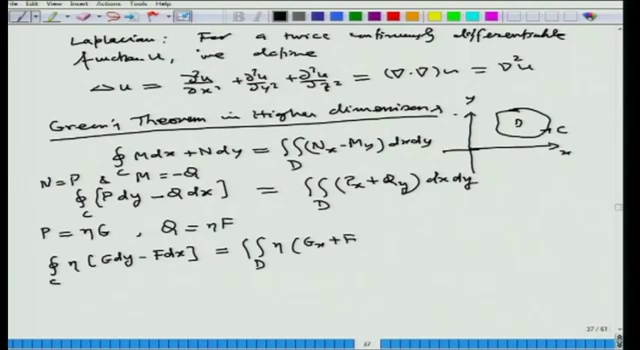 Edit View Insert Actions Tools Help
Laplacian: For a twice continuously differentiable
function u, we define
Δu = ∂²u/∂x² + ∂²u/∂y² + ∂²u/∂z² = (∇·∇)u = ∇²u
Green's Theorem in Higher dimensions.
∮_C Mdx + Ndy = ∬_D (N_x - M_y) dxdy
y
D
C
x
N = P & M = -Q
∮_C [Pdy - Qdx] = ∬_D (P_x + Q_y) dxdy
P = ηG , Q = ηF
∮_C η [Gdy - Fdx] = ∬_D η (G_x + F
37 / 61
37